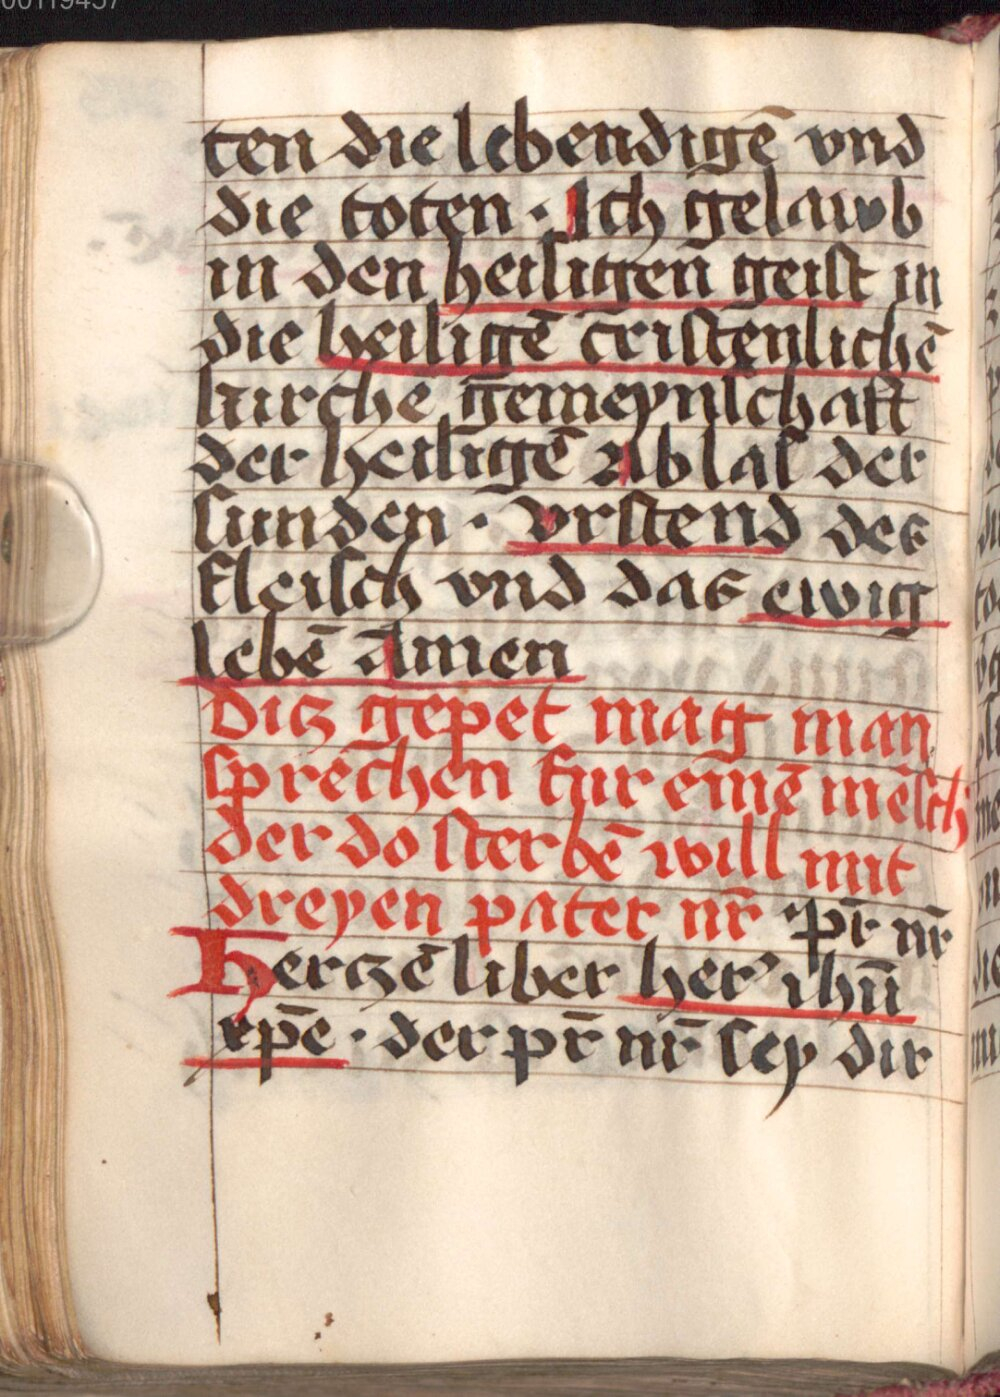 00119457
ten die lebendigē vnd
die toten · Ich gelawb
in den heiligen geist in
die heiligē cristenlichē
kirche gemeynschaft
der heiligē Ablas der
sunden · Vrstend des
fleisch vnd das ewig
lebē Amen
Ditz gepet mag man
sprechen fur einē mēsch
der do sterbē will mit
dreyen pater nr̄ pr̄ nr̄
Herczē liber her ihū
xp̄e · der pr̄ nr̄ sey dir